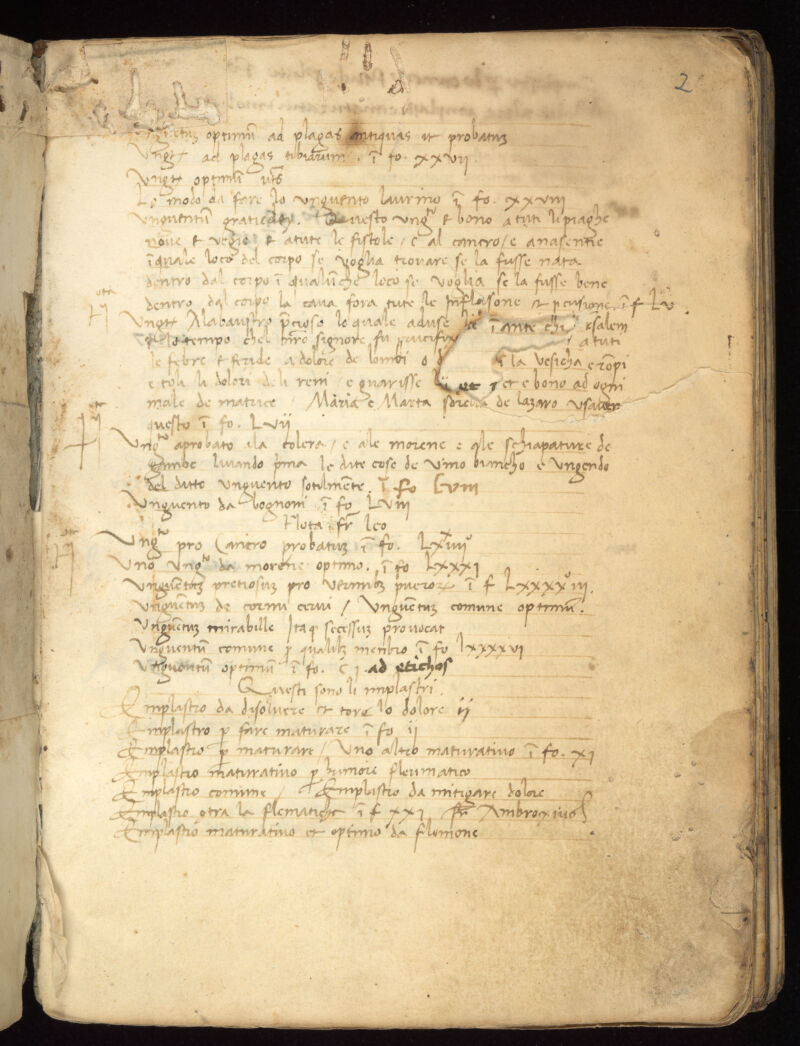 2
optimū ad plagas antiquas et probatuʒ
Ungt ad plagas tibiarum . ī fo. xxvii
Ungt optimū
Lo modo da fare lo unguento laurino ī fo. xxviii
Unguentū . Questo ungto e bono a tuti li piaghe
nove e vegio e a tute le fistole / e al cancro / e a nasentie
ī quale loco del corpo se voglia trovare se la fusse nata
dentro dal corpo ī qualunche loco se voglia se la fusse bene
dentro dal corpo la cava fora tute le Inflasone et ī f Lv
ota
Ungt Alabaustro p̄cioso lo quale aduse ī ante chi salem
lo tempo che nr̄o signore fu crucifix a tuti
le febre e feride a dolore de lombi o d la vesicha e rōpi
e toli li dolori deli reni e guarisse et e bono ad ogni
male de matrice / Maria e Marta sorella de lazaro usaven
ota
questo ī fo. Lvii
Ungto aprobato ila colera / e a le morene e q̄le schiapature de
gambe lavando p̄ma le dite cose de vino biancho e ungendo
del ditto unguento sotilmente. ī fo Lviii
Unguento da bognoni ī fo LVIII
Nota fr̄ leo
ota
Ungto pro Cancro probatuʒ ī fo. LXviiii
Uno ungto da morene optimo. ī fo LXXXI
Unguētuʒ pretiosuʒ pro vermibʒ pueror ī f LXXXXiii.
Unguētuʒ de cornu cervi / Unguētuʒ comune optimū.
Unguētuʒ mirabille Itaqʒ secessuʒ provocat
Unguentū comune p̄ qualibʒ membro ī fo LXXXXvi
Unguentū optimū ī fo. C I . ad etichos
Questi sono li implastri.
Emplastro da disolvere et tore lo dolore ii
Emplastro p fare maturare ī fo ii
Emplastro p maturare / Uno altro maturativo ī fo. xi
Emplastro maturativo p humore fleumatico
Emplastro comune / Emplastro da mitigare dolore
Emplastro otra la flematiche ī f XXI fr̄ Ambroxius
Emplastro maturativo et optimo da flemone